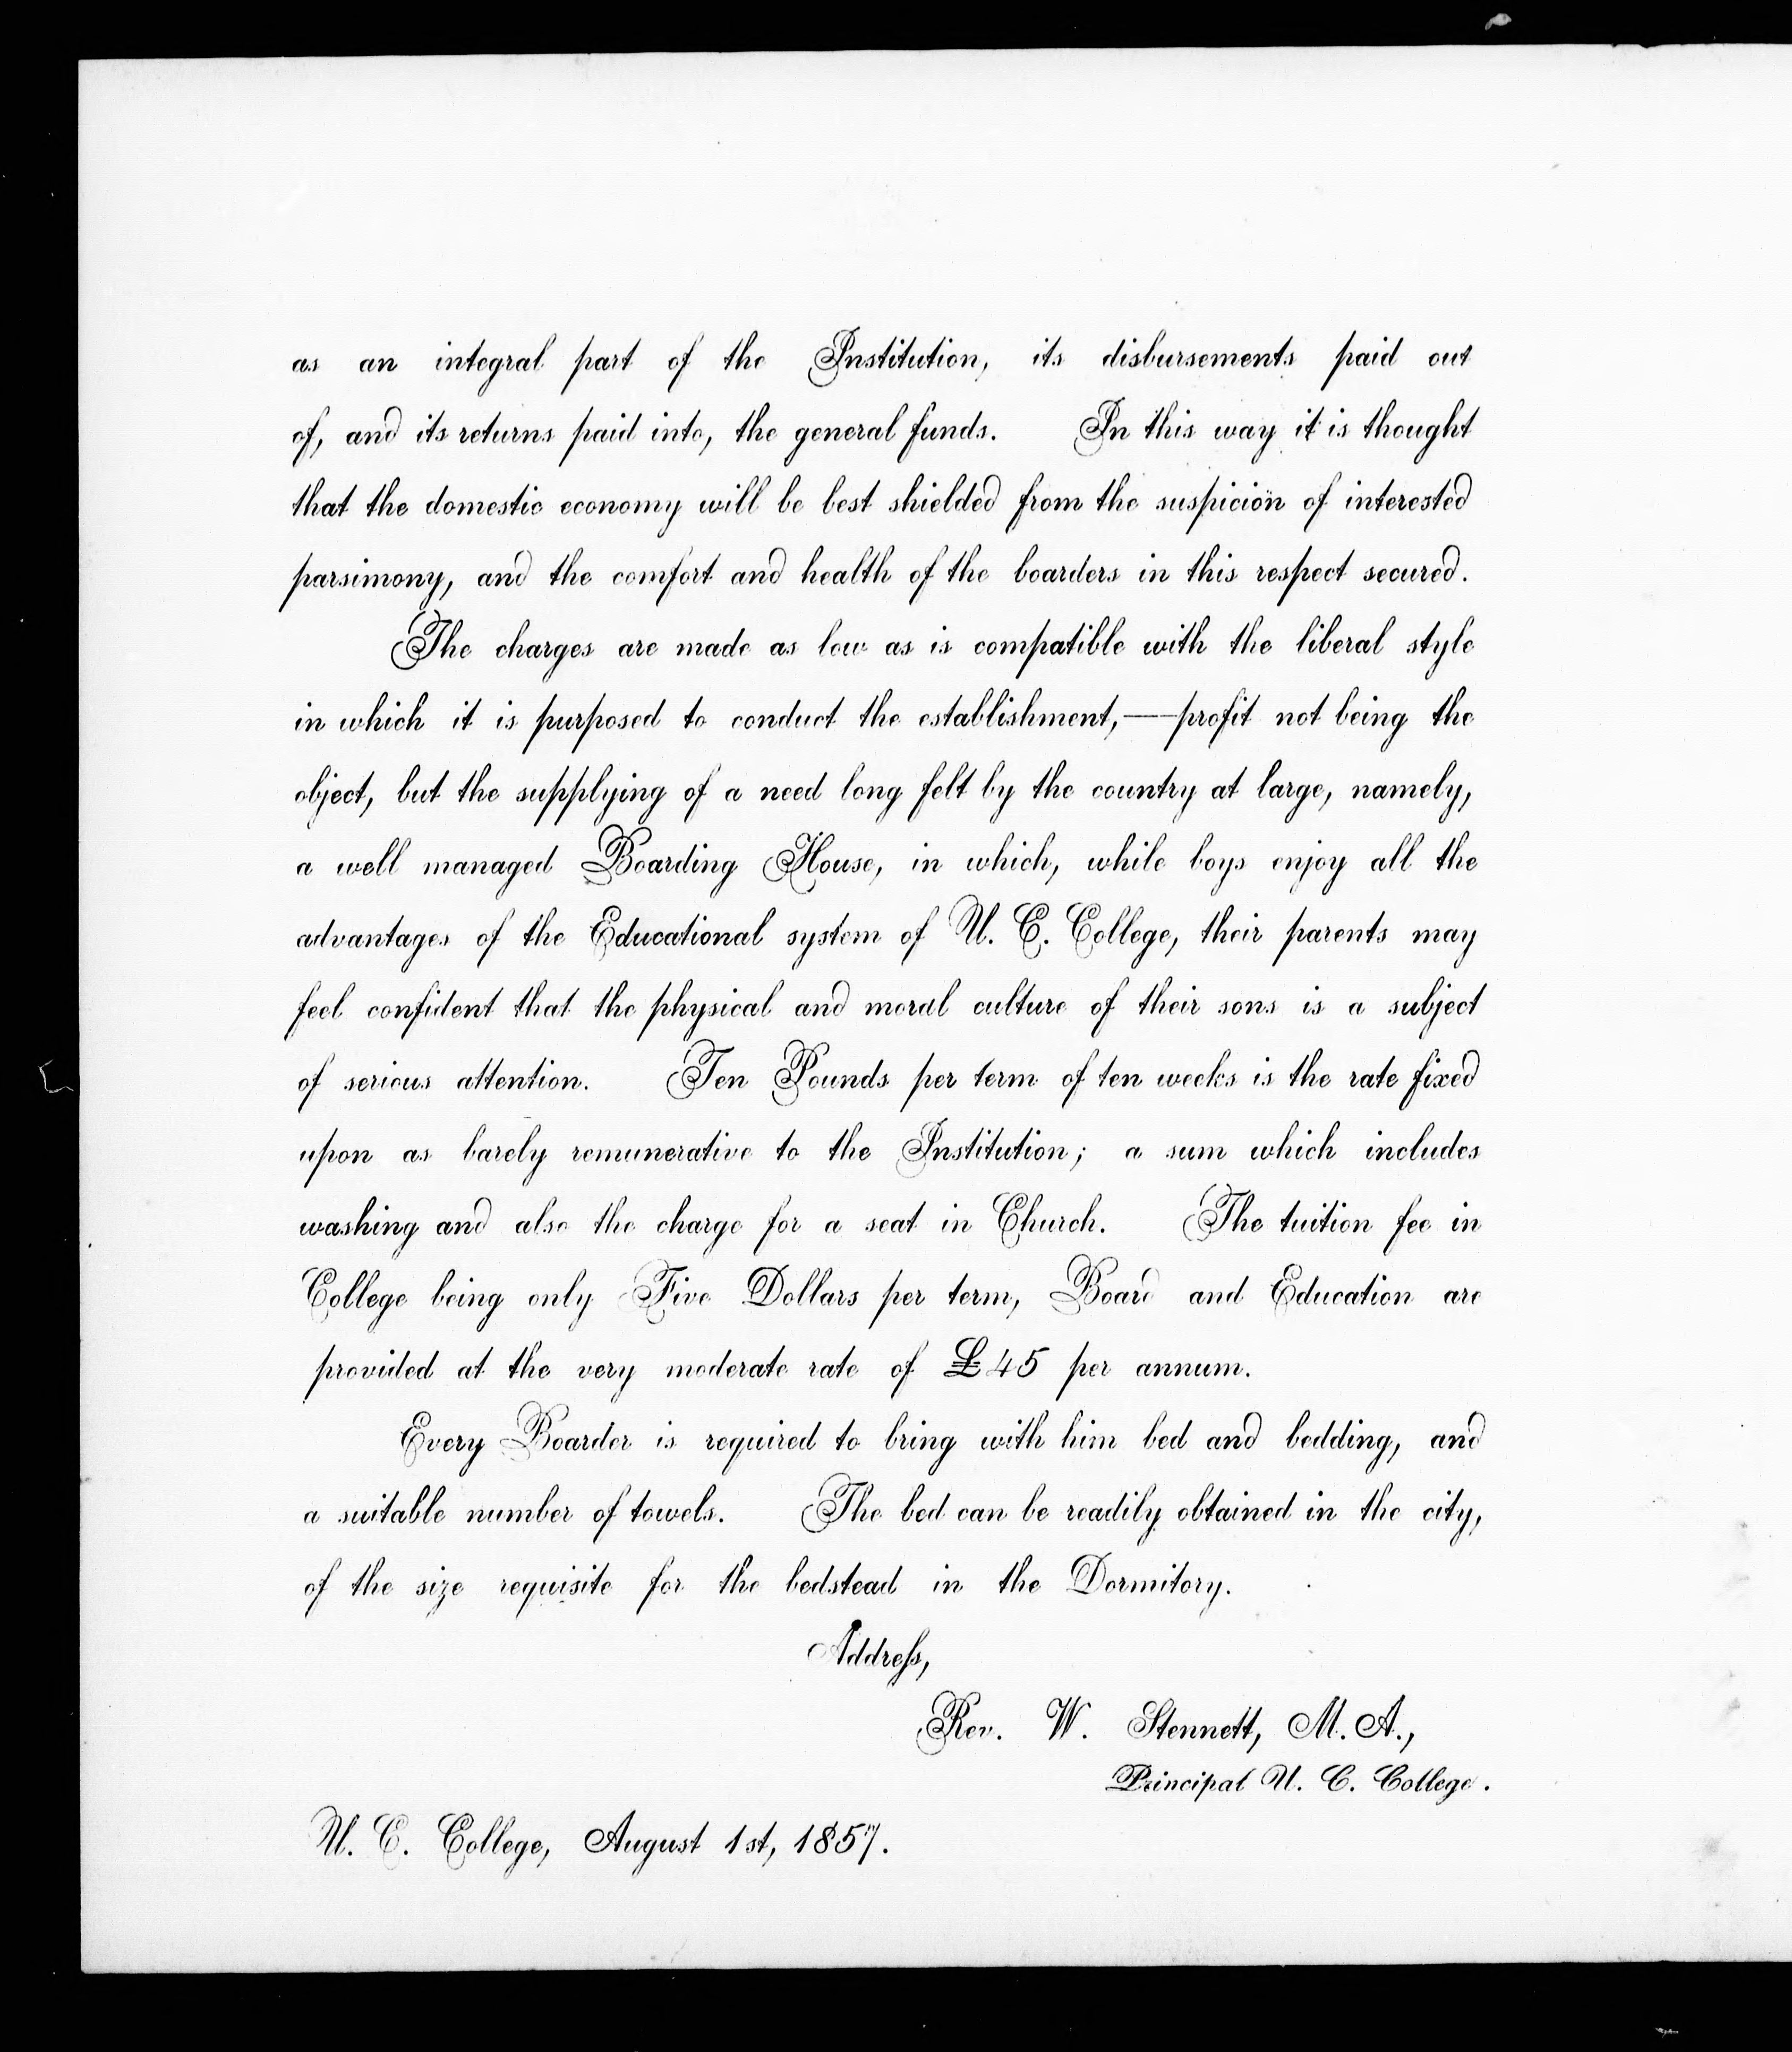 as an integral part of the Institution, its disbursements paid out
of, and its returns paid into, the general funds. In this way it is thought
that the domestic economy will be best shielded from the suspicion of interested
parsimony, and the comfort and health of the boarders in this respect secured.
The charges are made as low as is compatible with the liberal style
in which it is purposed to conduct the establishment,—profit not being the
object, but the supplying of a need long felt by the country at large, namely,
a well managed Boarding House, in which, while boys enjoy all the
advantages of the Educational system of U. C. College, their parents may
feel confident that the physical and moral culture of their sons is a subject
of serious attention. Ten Pounds per term of ten weeks is the rate fixed
upon as barely remunerative to the Institution; a sum which includes
washing and also the charge for a seat in Church. The tuition fee in
College being only Five Dollars per term, Board and Education are
provided at the very moderate rate of £45 per annum.
Every Boarder is required to bring with him bed and bedding, and
a suitable number of towels. The bed can be readily obtained in the city,
of the size requisite for the bedstead in the Dormitory.
Addreſs,
Rev. W. Stennett, M. A.,
Principal U. C. College.
U. C. College, August 1st, 1857.